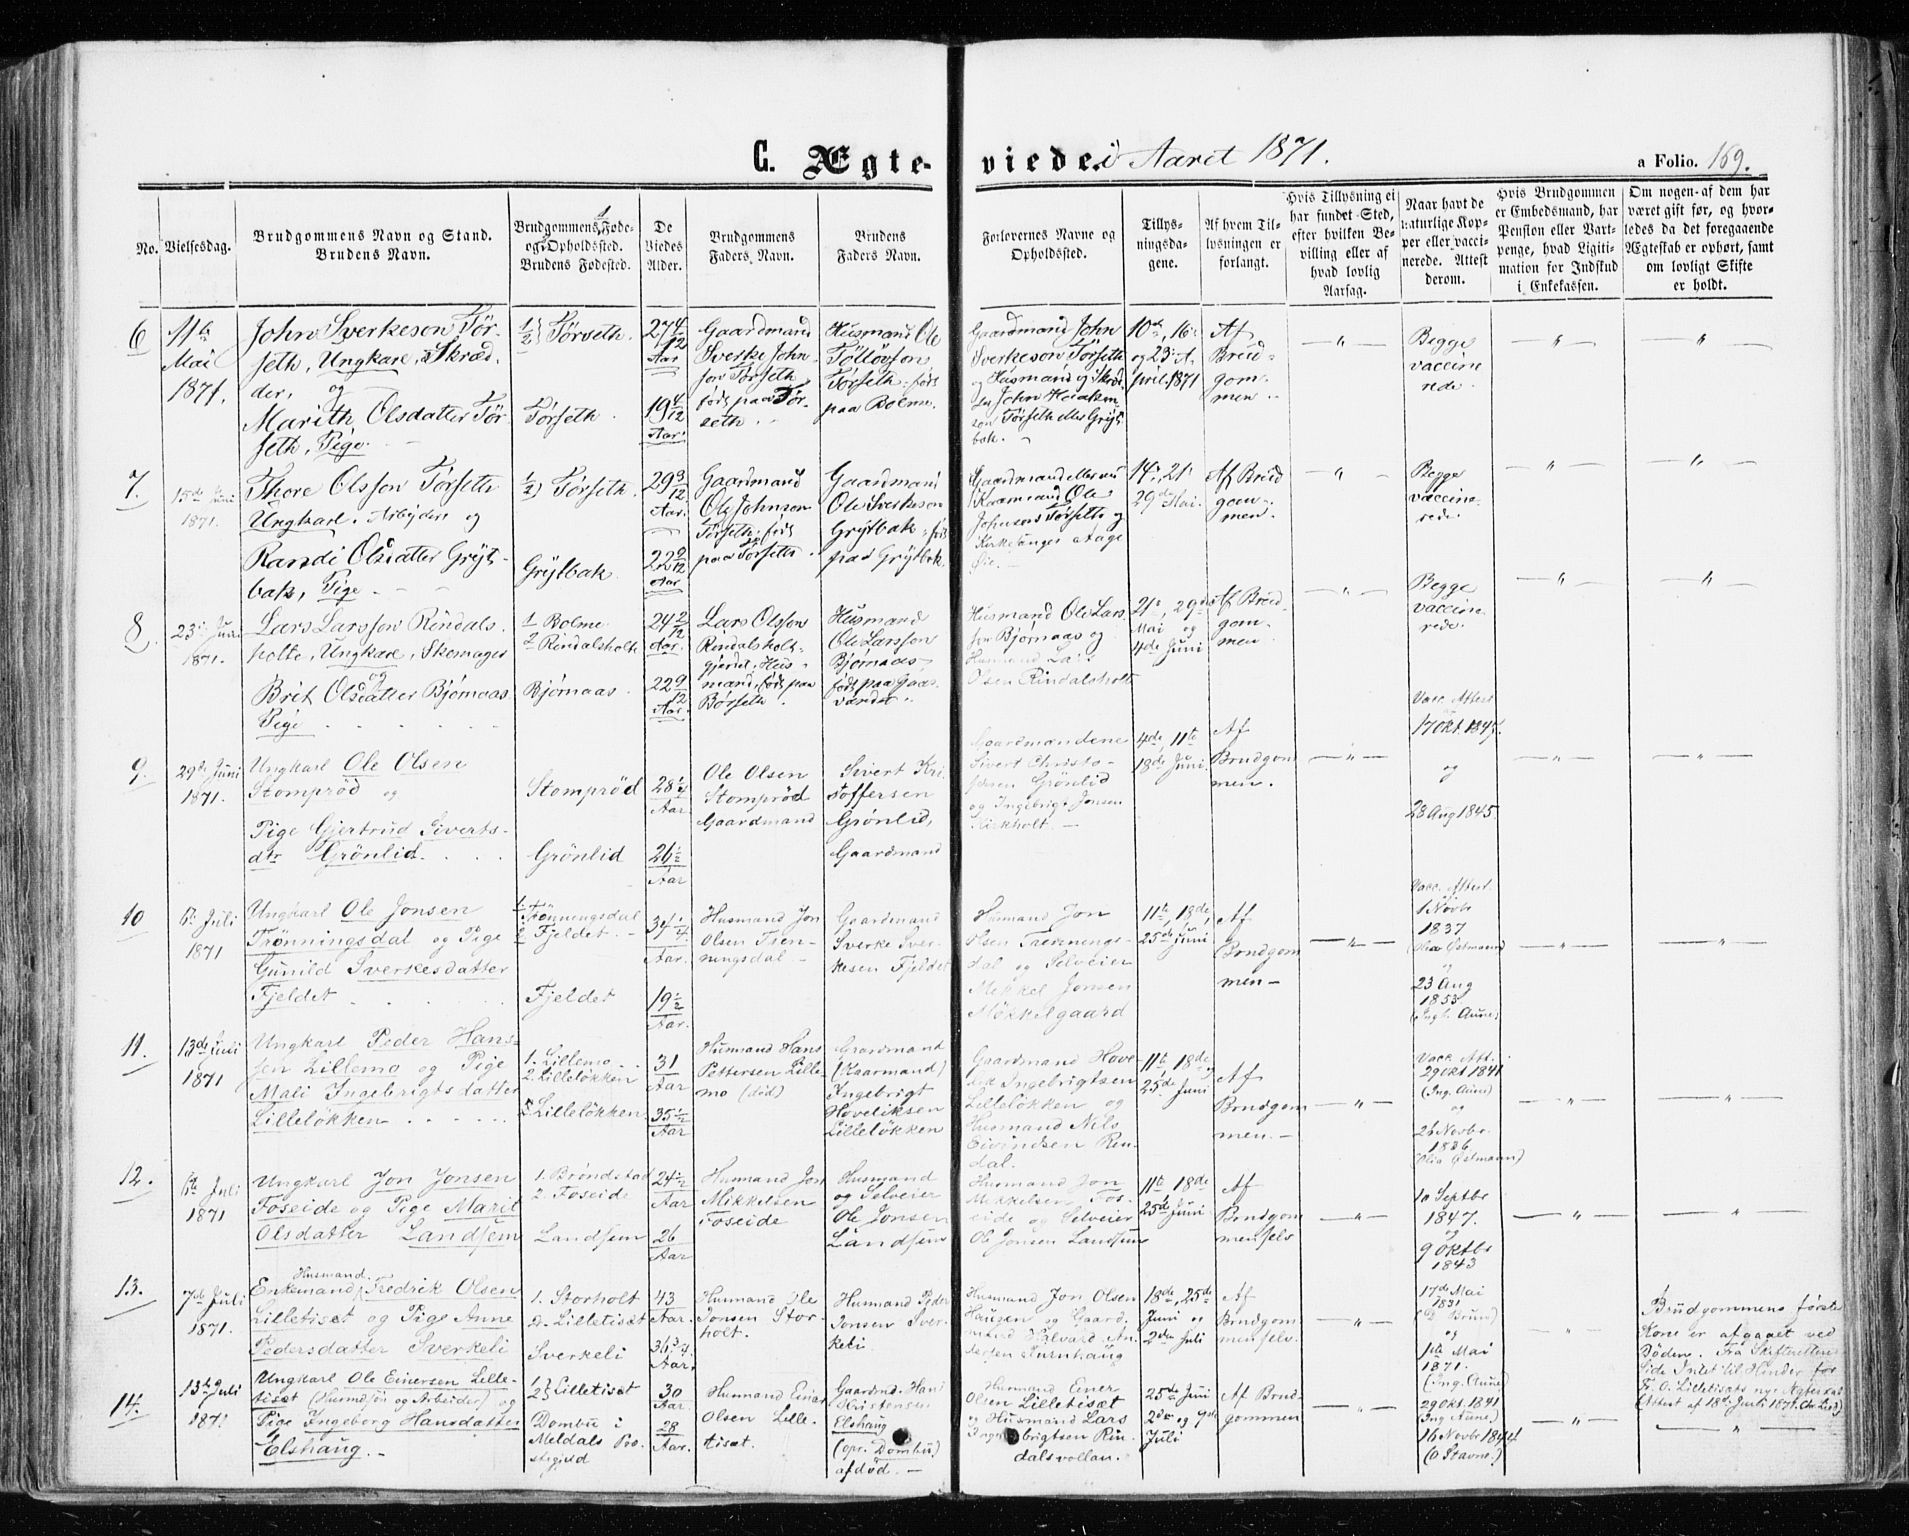 C. Ægteviede i Aaret 1871.
a Folio. 169.
No.
Vielsesdag.
Brudgommens Navn og Stand.
Brudens Navn.
Brudgommens Føde-
og Opholdssted.
Brudens Fødested.
De
Viedes
Alder.
Brudgommens
Faders Navn.
Brudens
Faders Navn.
Forlovernes Navne og
Opholdssted.
Tillys-
ningsda-
gene.
Af hvem Til-
lysningen er
forlangt.
Hvis Tillysning ei
har fundet Sted,
efter hvilken Be-
villing eller af
hvad lovlig
Aarsag.
Naar havt de
naturlige Kop-
per eller vacci-
nerede. Attest
derom.
Hvis Brudgommen
er Embedsmand, har
Pension eller Vart-
penge, hvad Ligiti-
mation for Indskud
i Enkekassen.
Om nogen af dem har
været gift før, og hvor-
ledes da det foregaaende
Ægteskab er ophørt, samt
om lovligt Skifte
er holdt.
6
11te
Mai
1871.
John Sverkeson Tør-
seth, Ungkarl, Skræd-
der,
og
Marith Olsdatter Tør-
seth, Pige.
1/2} Tørseth.
Tørseth.
27 4/12
Aar
19 4/12
Aar.
Gaardmand
Sverke John-
son Tørseth
født paa Tør-
seth.
Husmand Ole
Tølløvson
Tørseth, født
paa Bolme.
Gaardmand John
Sverkeson Tørseth
og Husmand og Skræd-
der John
Tørseth eller Gryt-
bak.
10de, 16de
og 23de A-
pril 1871
Af
Brud-
gom-
men.
— " —
Begge
vaccine-
rede.
— " —
— " —
7.
15de Juni
1871.
Thore Olsson Tørseth
Ungkarl. Arbeider og
Randi Olsdatter Gryt-
bak, Pige
1/2) Tørseth.
Grytbak.
29 3/12
Aar.
22 9/12
Aar
Gaardmand
Ole Johnson
Tørseth, født
paa Tørseth.
Gaardmand
Ole Sverkeson
Grytbak, født
paa Grytbak.
Gaardmand eller nu
Kaarmand Ole
Johnson Tørseth og
Kirkesanger Aage
Øie.
14de, 21de
29de Mai.
Af Brud-
gom-
men.
— " —
Begge
vaccine-
rede.
— " —
— " —
8.
23de Juni
1871.
Lars Larsson Rindals-
holte, Ungkarl, Skomager
og
Brit Olsdatter Bjørnaas
Pige
1 Bolme
2 Rindalsholt
Bjørnaas.
24 2/12
Aar.
22 9/12
Aar.
Lars Olsson
Rindalsholt-
gjerdet, Hus-
mand, født paa
Børseth.
Husmand
Ole Larsson
Bjørnaas
født paa Gaas-
værdet.
Husmand Ole Lars-
son Bjørnaas og
Husmand Lars
Olsen Rindalsholt
21de, 29de
Mai og
4de Juni
Af Brud-
gom-
men
— " —
Begge
vaccine-
rede.
— " —
— " —
9.
29de Juni
1871.
Ungkarl Ole Olsen
Stomprød og
Pige Gjertrud Siverts-
dtr Grönlid.
Stomprød
Grönlid
28 1/4
Aar
26 1/2
Aar
Ole Olsen
Stomprød
Gaardmand
Sivert Kri-
stoffersen
Grønlid,
Gaardmand
Gaardmændene
Sivert Christo-
fersen Grönlid
og Ingebrigt Jonsen
Kirkholt. —
4de, 11te
18de Juni
Af
Brudgom
men.
— " —
Vacc. Attest
17 Okt. 1847.
og
28 Aug 1845.
— " —
— " —
10
6te Juli
1871
Ungkarl Ole Jonsen
Trønningsdal og Pige
Gunild Sverkesdatter
Fjeldet
1. Trønningsdal
2. Fjeldet. —
Fjeldet
34 1/4
Aar.
19 1/2
Aar.
Husmand Jon
Olsen Træn-
ningsdal —
Gaardmand
Sverke Sver-
kesen Fjeldet
Husmand Jon
Olsen Trænnings-
dal og Selveier
Mikkel Jonsen
Møkkelgaard
11te, 18de,
25de Juni
Af
Brudgom
men —
— " —
Vacc. Attest.
1 Novbr
1837
(Olia Østmann)
og
23 Aug
1853.
(Ingb. Aune)
— " —
— " —
11.
13de Juli
1871
Ungkarl Peder Hans-
sen Lillemo og Pige
Mali Ingebrigtsdatter
Lilleløkken
1. Lillemo
2. Lilleløkken
Lilleløkken
31
Aar
35 1/2
Aar
Husmand Hans
Pettersen Lille-
mo (død)
Gaardmand
(Kaarmand)
Ingebrigt
Hoveliksen
Lilleløkken
Gaardmand Hove-
lik Ingebrigtsen
Lilleløkken og
Husmand Nils
Eivindsen Rin-
dal.
11te, 18de og
25de Juni
Af
Brudgom
men. —
— " —
Vacc. Att.
29 Okt 1841
(Ing. Aune)
og
26 Novbr.
1836
(Olia Østmann)
— " —
— " —
12.
6te Juli
1871
Ungkarl Jon Jonsen
Foseide og Pige Marit
Olsdatter Landsem
1. Brøndstad
2. Foseide
Landsem
24 1/2
Aar
26
Aar
Husmand Jon
Mikkelsen
Foseide
Husmand
og Selveier
Ole Jonsen
Landsem
Husmand Jon
Mikkelsen Fos-
eide og Selveier
Ole Jonsen Landsem
11te 18de
25de Juni
Af
Brudgom
men selv
— " —
10 Septbr
1847.
og
9 Oktbr
1843
— " —
— " —
13.
7de Juli
1871.
Husmand.
Enkemand Fredrik Olsen
Lilletisæt og Pige Anne
Pedersdatter Sverkeli
1. Storholt
2. Lilletisæt
Sverkeli
43
Aar.
36 3/4
Aar.
Husmand Ole
Jonsen Stor-
holt.
Husmand Peder
Jonsen Sver-
keli.
Husmand Jon Olsen
Haugen og Gaard-
mand Halvard An-
dersen Furuhaug
18de, 25de
Juni og
2den Juli
Af
Brudgom
men selv.
— " —
17de Mai
1831
(Brun)
og
1ste Mai
1871.
(Ing. Aune)
— " —
Brudgommens første
Kone er afgaaet ved
Døden. Fra Skifterettens
Side Intet til Hinder for
Fr. O. Lilletisæts nye Ægteskab
(Attest af 18de Juli 1871. )
14.
13de Juli
1871
Ungkarl Ole Einersen Lille-
tisæt (Husmdsøn og Arbeider) og
Pige Ingeborg Hansdatter
Elshaug. —
1/2} Lilletisæt
Dombu i
Meldals Præ-
stegjeld
30
Aar
28
Aar.
Husmand Einar
Olsen Lille-
tisæt.
Gaardmd. Hans
Kristensen
Elshaug
(opr. Dombu)
afdød. —
Husmand Ener
Olsen Lilletisæt
og Husmand Lars
Ingebrigtsen Rin-
dalsvollan.
25de Juni
2den og 9de
Juli
Af Brud-
gommen
— " —
29 Okt. 1841
(Ing Aune)
16 Novbr 1844
(O Stavne.)
— " —
— " —